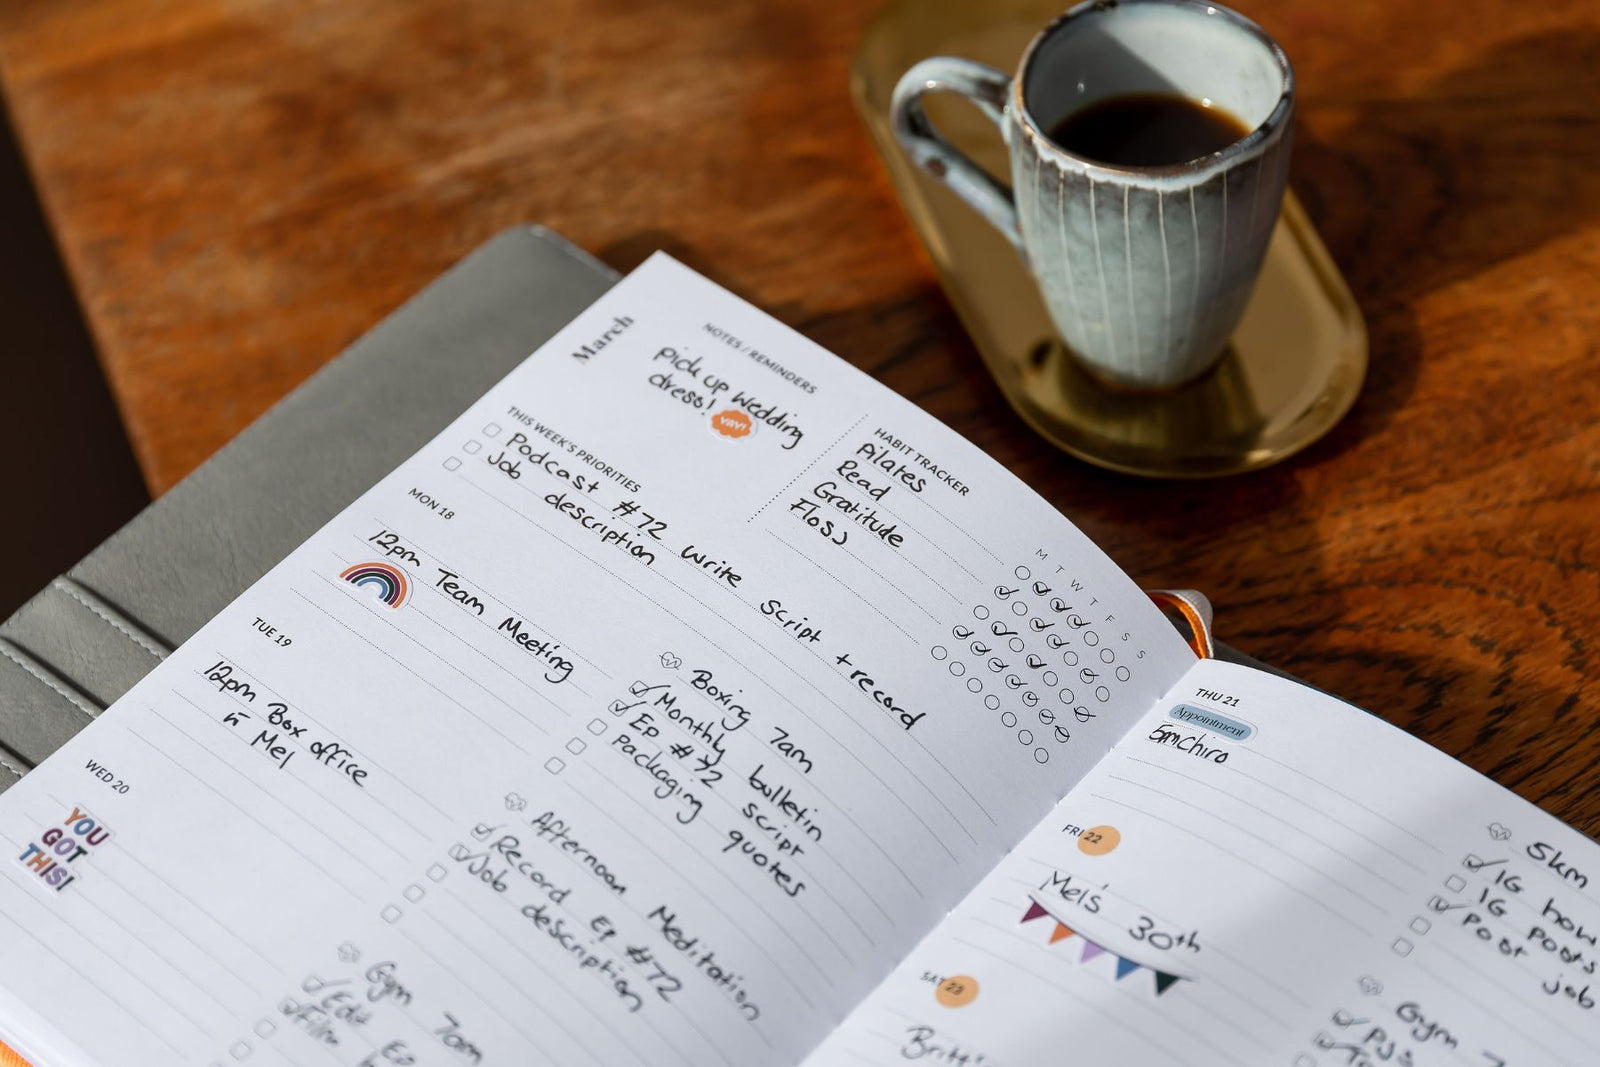 March
NOTES / REMINDERS
pick up wedding
dress!
YAY!
HABIT TRACKER
Pilates
Read
Gratitude
Floss
M T W T F S S
THIS WEEK'S PRIORITIES
Podcast #72 write script + record
Job description
MON 18
12pm Team Meeting
Boxing 7am
Monthly bulletin
Ep #72 script
packaging quotes
TUE 19
12pm Box office
Mel
Afternoon Meditation
Record Ep #72
Job description
WED 20
YOU
GOT
THIS!
Gym 7am
Edit Ep
Film
THU 21
Appointment
5pm Chiro
5km
IG how
IG posts
Post job
FRI 22
Mel's 30th
Gym 7
PJs
SAT 23
Britt's